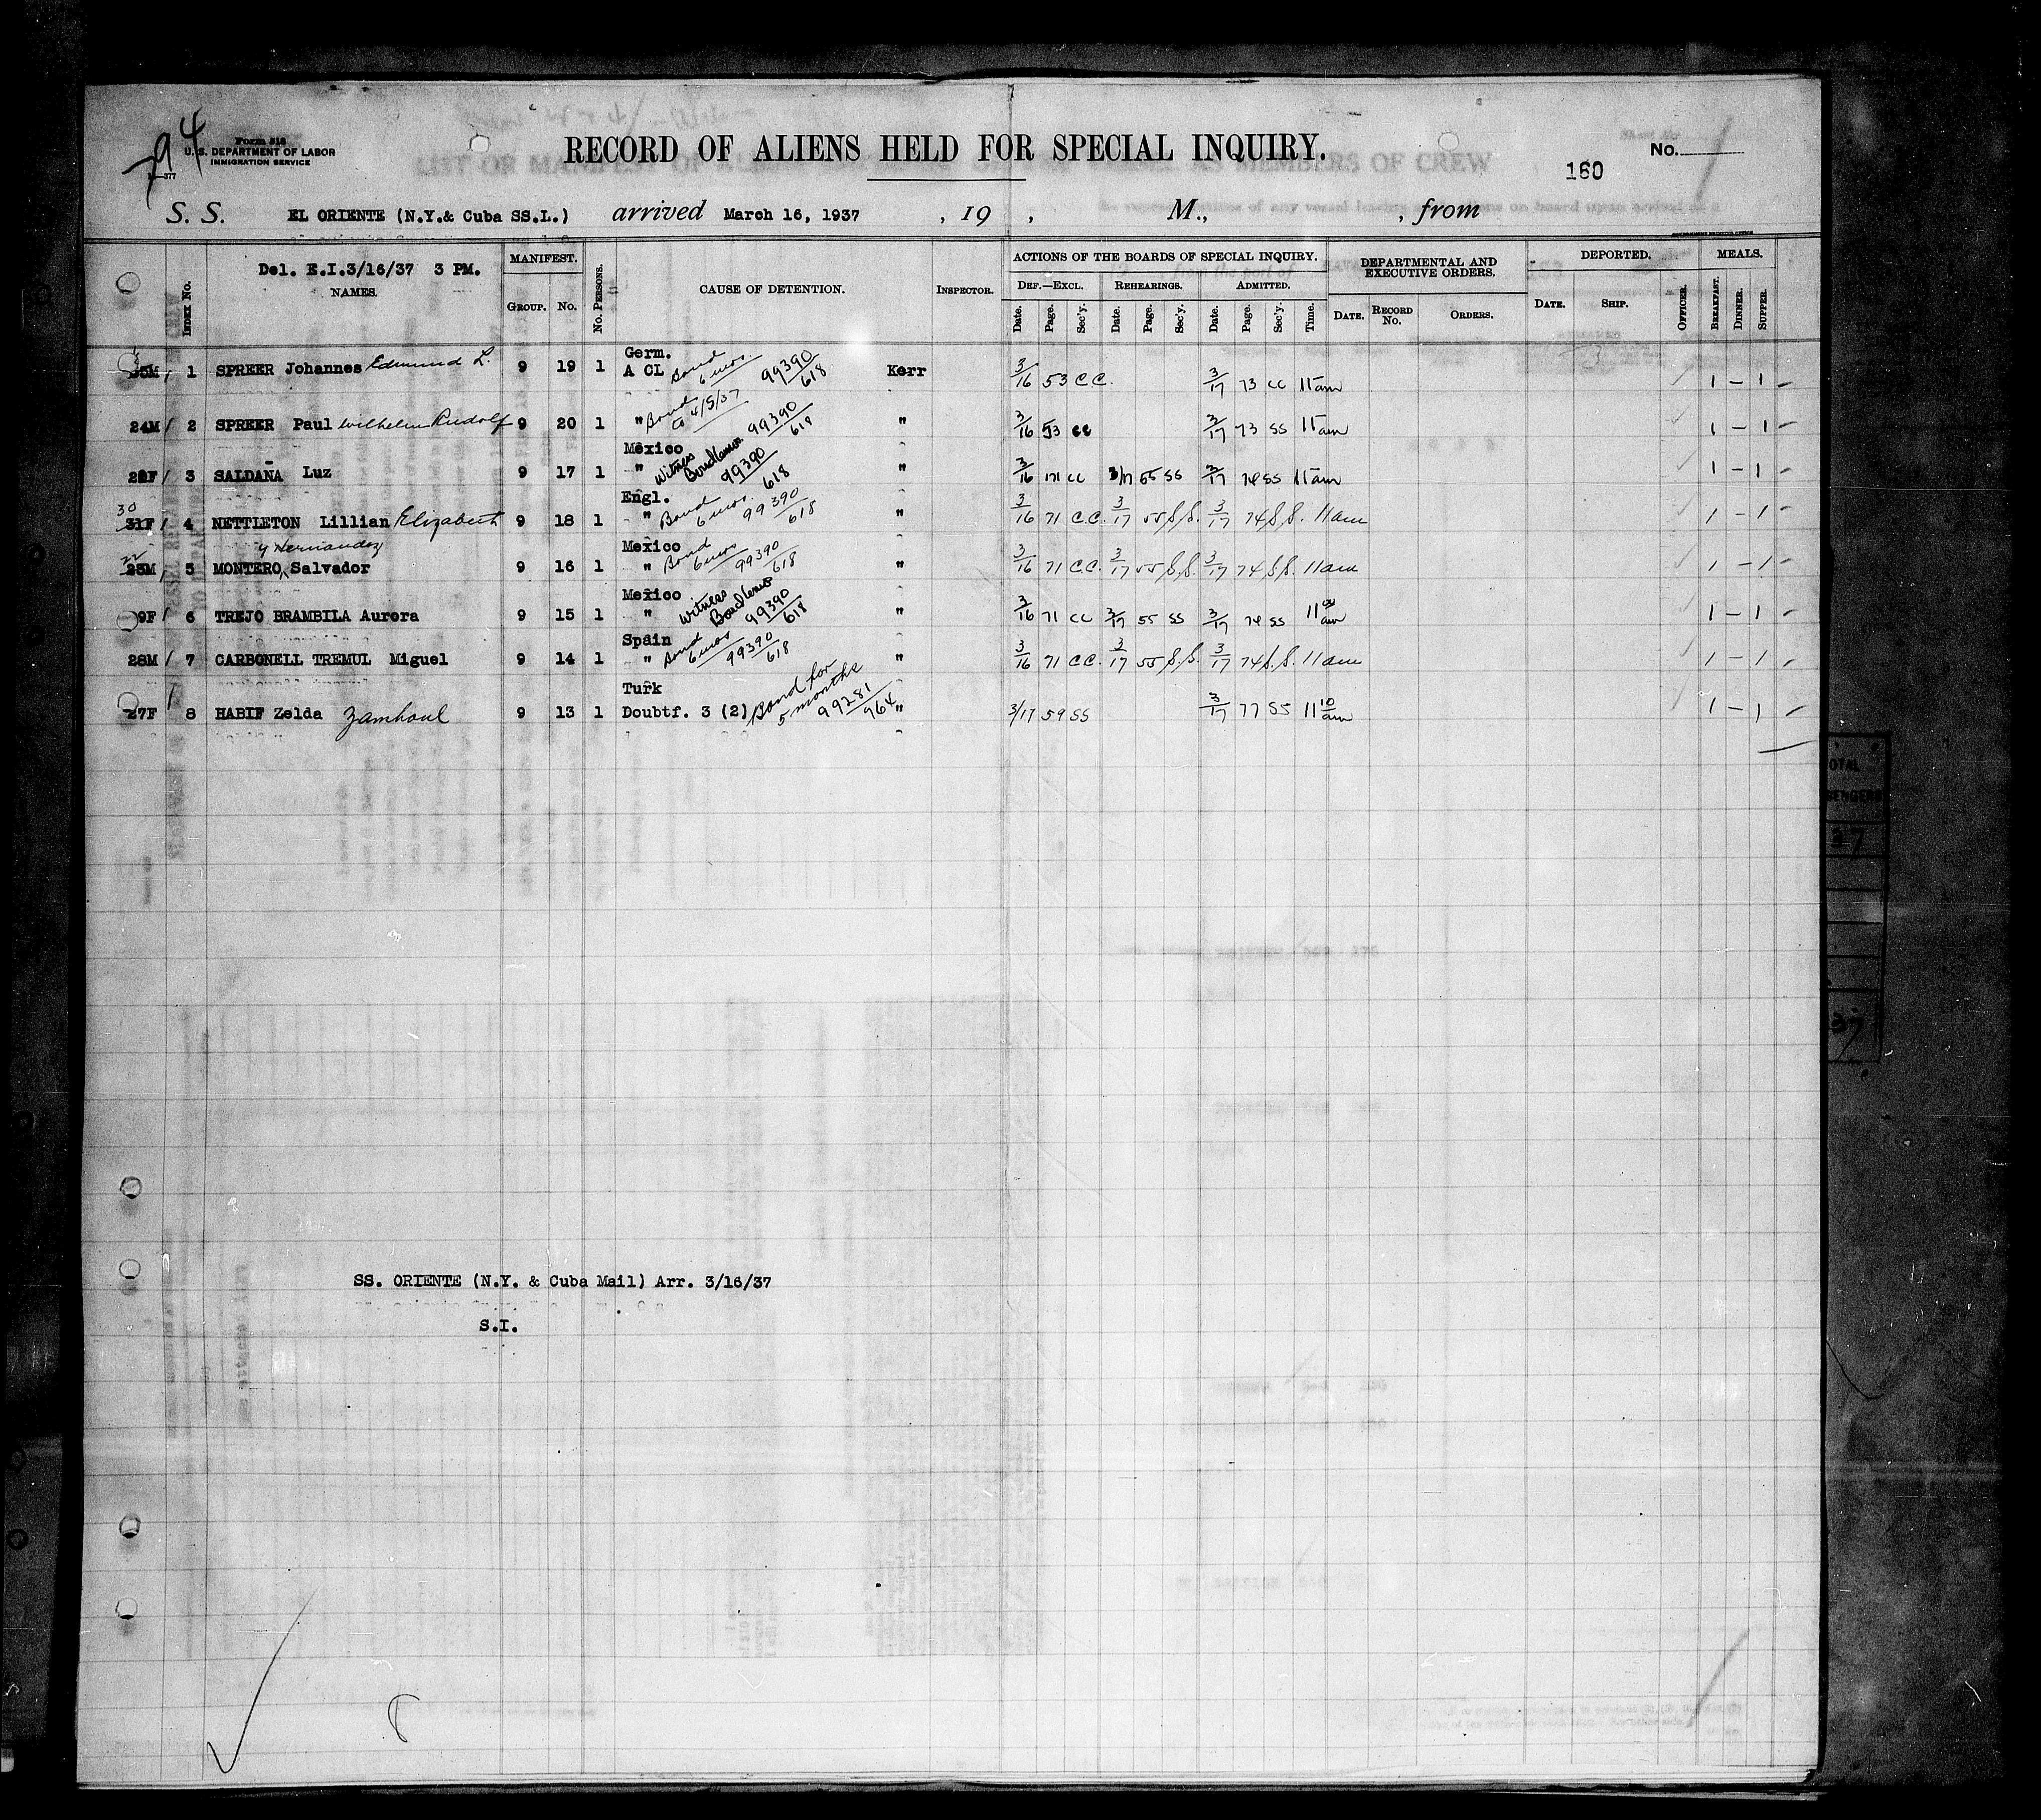 94
Form 518
U. S. DEPARTMENT OF LABOR
IMMIGRATION SERVICE
RECORD OF ALIENS HELD FOR SPECIAL INQUIRY.
160
No.
S. S. EL ORIENTE (N.Y.& Cuba SS.L.) arrived March 16, 1937 , 19 , M., , from
Index No. Del. E.I.3/16/37 3 PM. NAMES. MANIFEST. GROUP. No. No. PERSONS. CAUSE OF DETENTION. INSPECTOR. ACTIONS OF THE BOARDS OF SPECIAL INQUIRY. DEPARTMENTAL AND EXECUTIVE ORDERS. DEPORTED. MEALS.
DEF.—EXCL. REHEARINGS. ADMITTED.
Date. Page. Sec'y. Date. Page. Sec'y. Date. Page. Sec'y. Time. DATE. RECORD No. ORDERS. DATE. SHIP. OFFICER. BREAKFAST. DINNER. SUPPER.
Germ.
1 SPREER Johannes Edmund L. 9 19 1 A CL Bond 6 mos. 99390/618 Kerr 3/16 53 CC. 3/17 73 CC 11 am 1 – 1
24M 2 SPREER Paul Wilhelm Rudolf 9 20 1 " Bond to 4/5/37 99390/618 " 3/16 53 CC 3/17 73 SS 11 am 1 – 1
Mexico
3 SALDAÑA Luz 9 17 1 " Witness Bond 6mos 99390/618 " 3/16 71 CC 3/17 55 SS 3/17 74 SS 11 am 1 – 1
Engl.
30 31F 4 NETTLETON Lillian Elizabeth 9 18 1 " Bond 6 mos. 99390/618 " 3/16 71 C.C. 3/17 55 S.S. 3/17 74 S.S. 11am 1 – 1
y Hernandez Mexico
22 25M 5 MONTERO, Salvador 9 16 1 " Bond 6 mos 99390/618 " 3/16 71 C.C. 3/17 55 S.S. 3/17 74 S.S. 11am 1 – 1
Mexico
9F 6 TREJO BRAMBILA Aurora 9 15 1 " Witness Bond 6mos 99390/618 " 3/16 71 CC 3/17 55 SS 3/17 74 SS 11 00 am 1 – 1
Spain
28M 7 CARBONELL TREMUL Miguel 9 14 1 " Bond 6 mos 99390/618 " 3/16 71 C.C. 3/17 55 S.S. 3/17 74 S.S. 11am 1 – 1
Turk
27F 8 HABIF Zelda Zamhoul 9 13 1 Doubtf. 3 (2) Bond for 5 months 99281/964 " 3/17 59 SS 3/17 77 SS 11 10 am 1 – 1
SS. ORIENTE (N.Y. & Cuba Mail) Arr. 3/16/37
S.I.
8